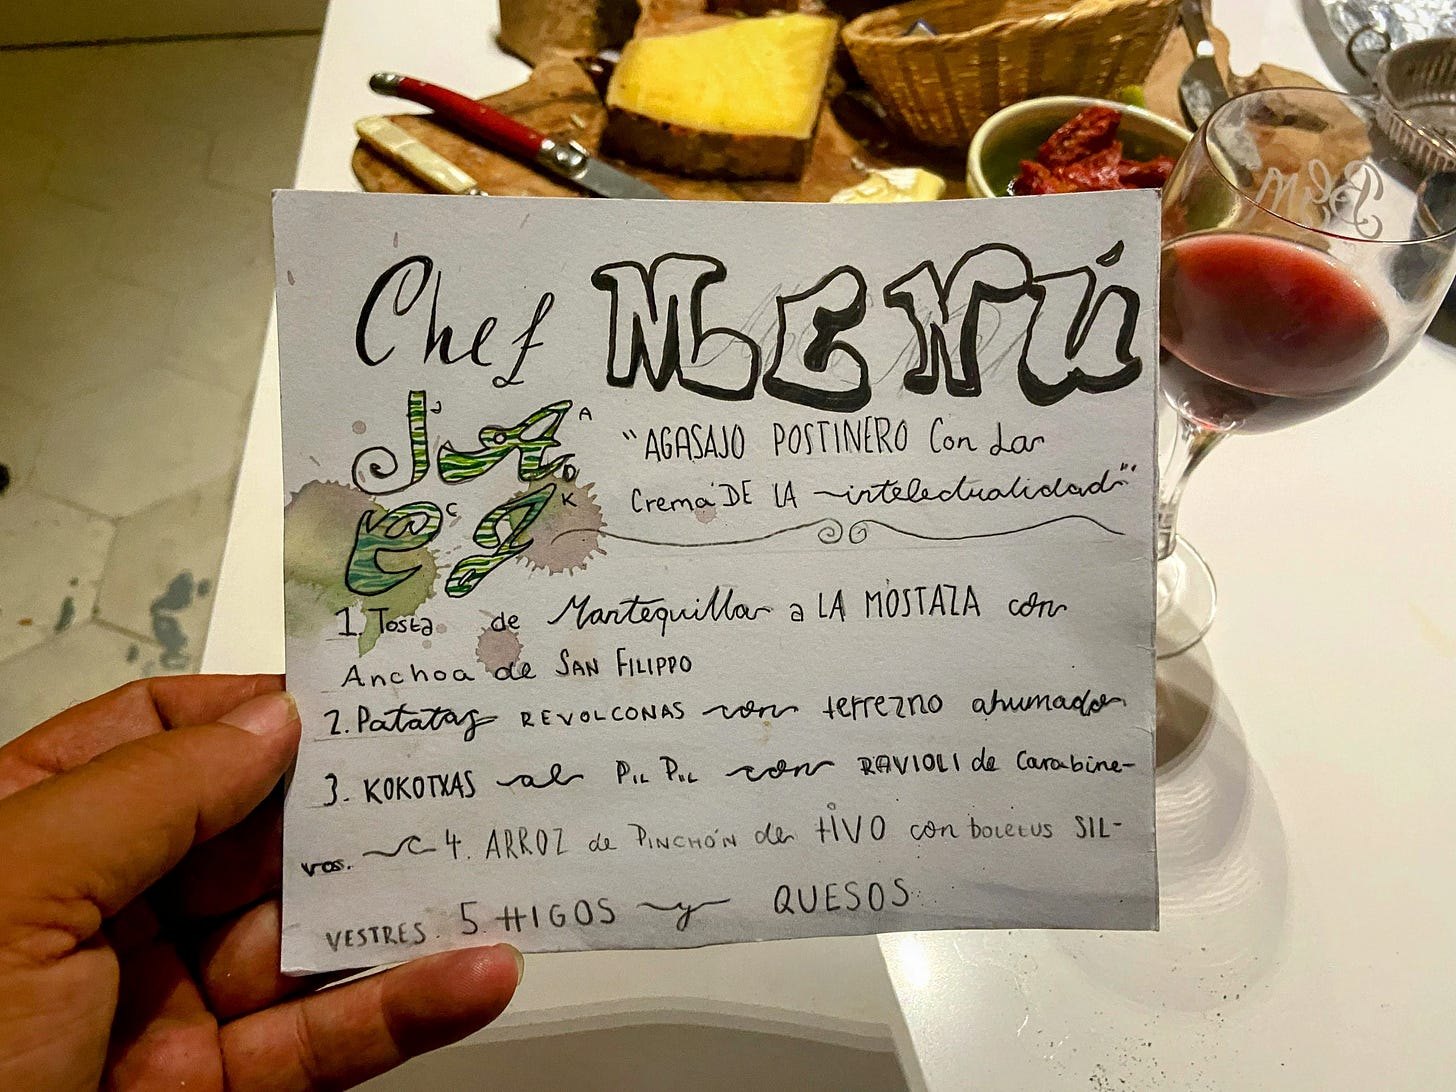 Chef MENÚ
JA
J A D
CK
C K
"AGASAJO POSTINERO Con La
Crema DE LA intelectualidad"
1. Tosta de Mantequilla a LA MOSTAZA con
Anchoa de SAN FILIPPO
2. Patatas REVOLCONAS con terrezno ahumado
3. KOKOTXAS al PIL PIL con RAVIOLI de Carabine-
ros. 4. ARROZ de PINCHÓN de tiVO con boletus SIL-
VESTRES. 5. HIGOS y QUESOS